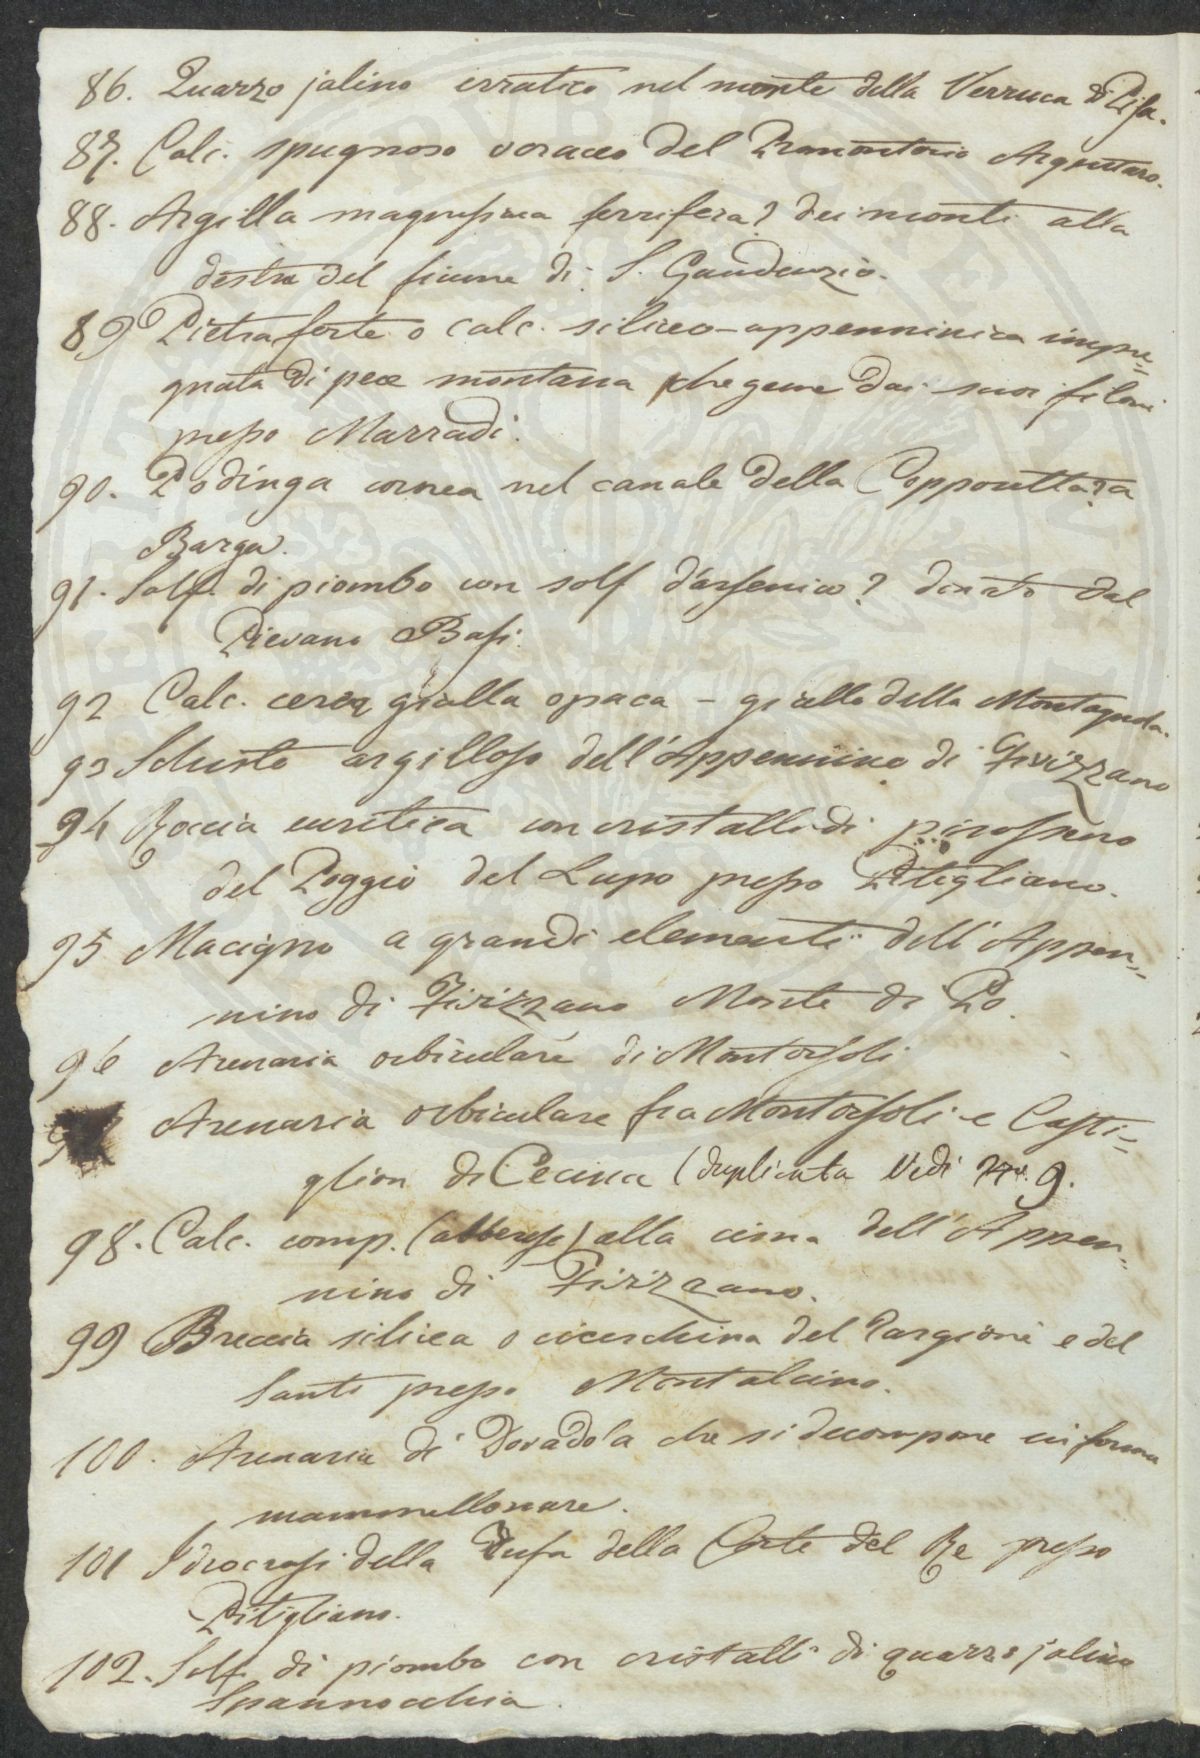 86. Quarzo jalino erratico nel monte della Verruca di Pisa.
87. Calc. spugnoso voraceo del Promontorio Argentaro.
88. Argilla magnesiaca ferrifera? dei monti alla
destra del fiume di S. Gaudenzio.
89 Pietra forte o calc. siliceo-appenninica impre=
gnata di pece montana che geme dai suoi filoni
presso Marradi.
90. Podinga cornea nel canale della Copponetta? a
Barga.
91. Solf. di piombo con solf d'arsenico? donato dal
Pievano Basi.
92 Calc. cerea gialla opaca - giallo della Montagnola.
93 Schisto argilloso dell'Appennino di Fivizzano
94 Roccia euritica con cristalli di pirosseno
del Poggio del Lupo presso Pitigliano.
95 Macigno a grandi elementi dell'Appen=
nino di Fivizzano Monte di Po.
96 Arenaria orbiculare di Montorsoli
9 Arenaria orbiculare fra Montorsoli e Casti=
glion di Cecina (duplicata Vedi N. 9.
98. Calc. comp. (alberese) alla cima dell'Appen=
nino di Fivizzano.
99 Breccia silicea o cicerchina del Targioni e del
Santi presso Montalcino.
100. Arenaria di Dovadola che si decompone in forma
mammellonare.
101 Idocrasi della Tufa della Corte del Re presso
Pitigliano.
102. Solf. di piombo con cristalli di quarzo jalino
Spannocchia.